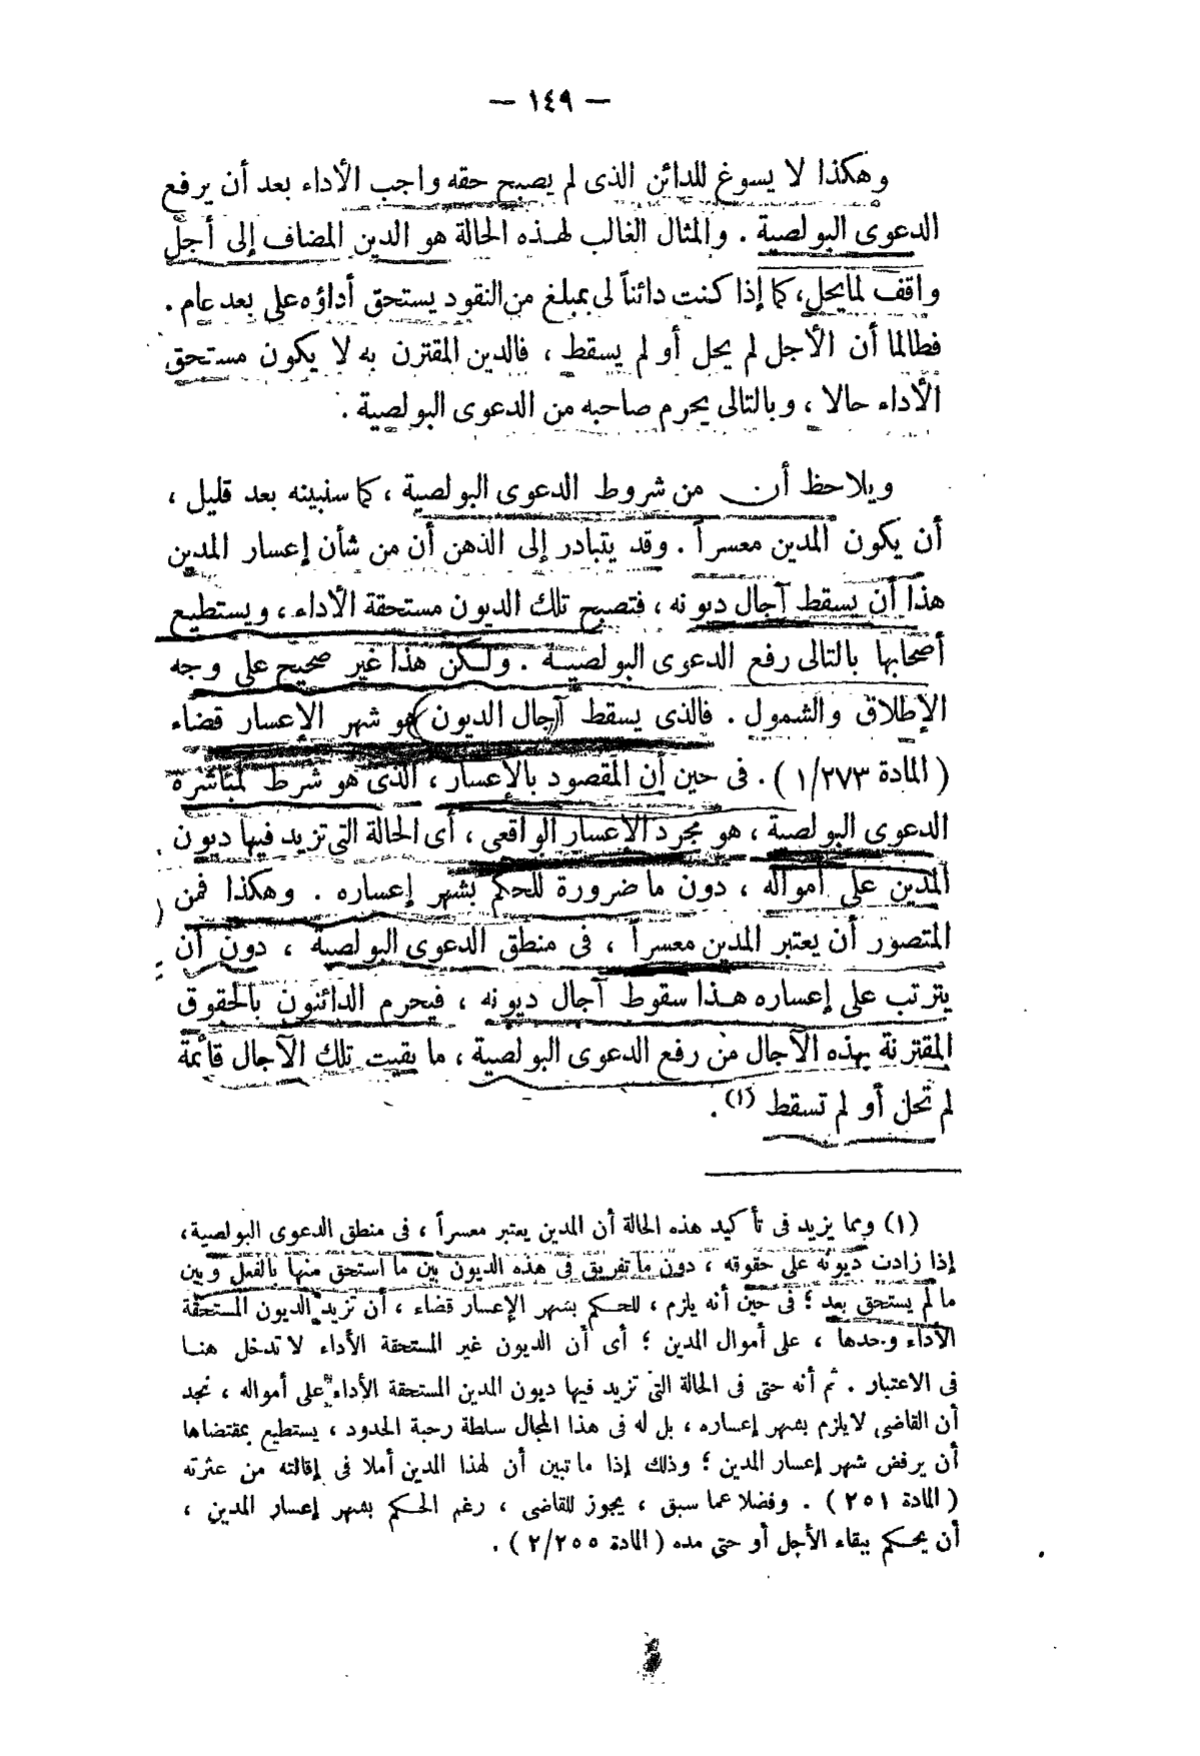 — ١٤٩ —
وهكذا لا يسوغ للدائن الذى لم يصبح حقه واجب الأداء بعد أن يرفع
الدعوى البولصية . والمثال الغالب لهذه الحالة هو الدين المضاف إلى أجل
واقف لما يحل، كما إذا كنت دائناً لى بمبلغ من النقود يستحق أداؤه على بعد عام .
فطالما أن الأجل لم يحل أو لم يسقط ، فالدين المقترن به لا يكون مستحق
الأداء حالا ، وبالتالى يحرم صاحبه من الدعوى البولصية .
ويلاحظ أن من شروط الدعوى البولصية ، كما سنبينه بعد قليل ،
أن يكون المدين معسراً . وقد يتبادر إلى الذهن أن من شأن إعسار المدين
هذا أن يسقط آجال ديونه ، فتصبح تلك الديون مستحقة الأداء ، ويستطيع
أصحابها بالتالى رفع الدعوى البولصية . ولكن هذا غير صحيح على وجه
الإطلاق والشمول . فالذى يسقط آجال الديون هو شهر الإعسار قضاء
( المادة ١/٢٧٣ ) . فى حين أن المقصود بالإعسار ، الذى هو شرط لمباشرة
الدعوى البولصية ، هو مجرد الإعسار الواقعى ، أى الحالة التى تزيد فيها ديون
المدين على أمواله ، دون ما ضرورة للحكم بشهر إعساره . وهكذا فمن
المتصور أن يعتبر المدين معسراً ، فى منطق الدعوى البولصية ، دون أن
يترتب على إعساره هذا سقوط آجال ديونه ، فيحرم الدائنون بالحقوق
المقترنة بهذه الآجال من رفع الدعوى البولصية ، ما بقيت تلك الآجال قائمة
لم تحل أو لم تسقط (١) .
(١) ومما يزيد فى تأكيد هذه الحالة أن المدين يعتبر معسراً ، فى منطق الدعوى البولصية،
إذا زادت ديونه على حقوقه ، دون ما تفريق فى هذه الديون بين ما استحق منها بالفعل وبين
ما لم يستحق بعد ؛ فى حين أنه يلزم ، للحكم بشهر الإعسار قضاء ، أن تزيد الديون المستحقة
الأداء وحدها ، على أموال المدين ؛ أى أن الديون غير المستحقة الأداء لا تدخل هنا
فى الاعتبار . ثم أنه حتى فى الحالة التى تزيد فيها ديون المدين المستحقة الأداء على أمواله ، نجد
أن القاضى لا يلزم بشهر إعساره ، بل له فى هذا المجال سلطة رحبة الحدود ، يستطيع بمقتضاها
أن يرفض شهر إعسار المدين ؛ وذلك إذا ما تبين أن لهذا المدين أملا فى إقالته من عثرته
( المادة ٢٥١ ) . وفضلا عما سبق ، يجوز للقاضى ، رغم الحكم بشهر إعسار المدين ،
أن يحكم ببقاء الأجل أو حتى مده ( المادة ٢/٢٥٥ ) .